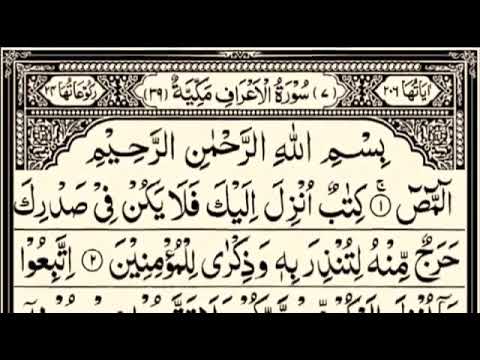 اٰيَاتُهَا ٢٠٦ (٧) سُوْرَةُ الْاَعْرَافِ مَكِّيَّةٌ (٣٩) رُكُوْعَاتُهَا ٢٤
بِسْمِ اللّٰهِ الرَّحْمٰنِ الرَّحِيْمِ
الٓمّٓصٓ ۚ‏ ۝١ كِتٰبٌ اُنْزِلَ اِلَيْكَ فَلَا يَكُنْ فِيْ صَدْرِكَ
حَرَجٌ مِّنْهُ لِتُنْذِرَ بِهٖ وَذِكْرٰى لِلْمُؤْمِنِيْنَ ۝٢ اِتَّبِعُوْا